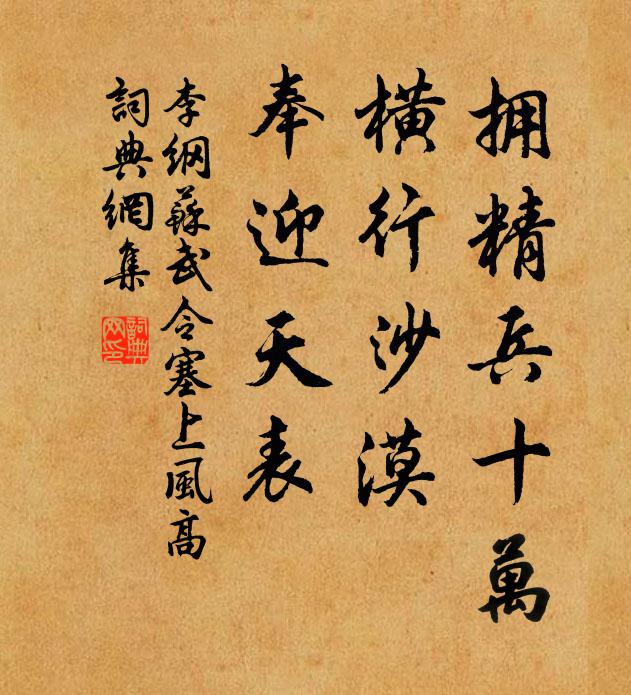 拥精兵十萬
橫行沙漠
奉迎天表
李綱蘇武令塞上風高
詞典網集
詞典
网印